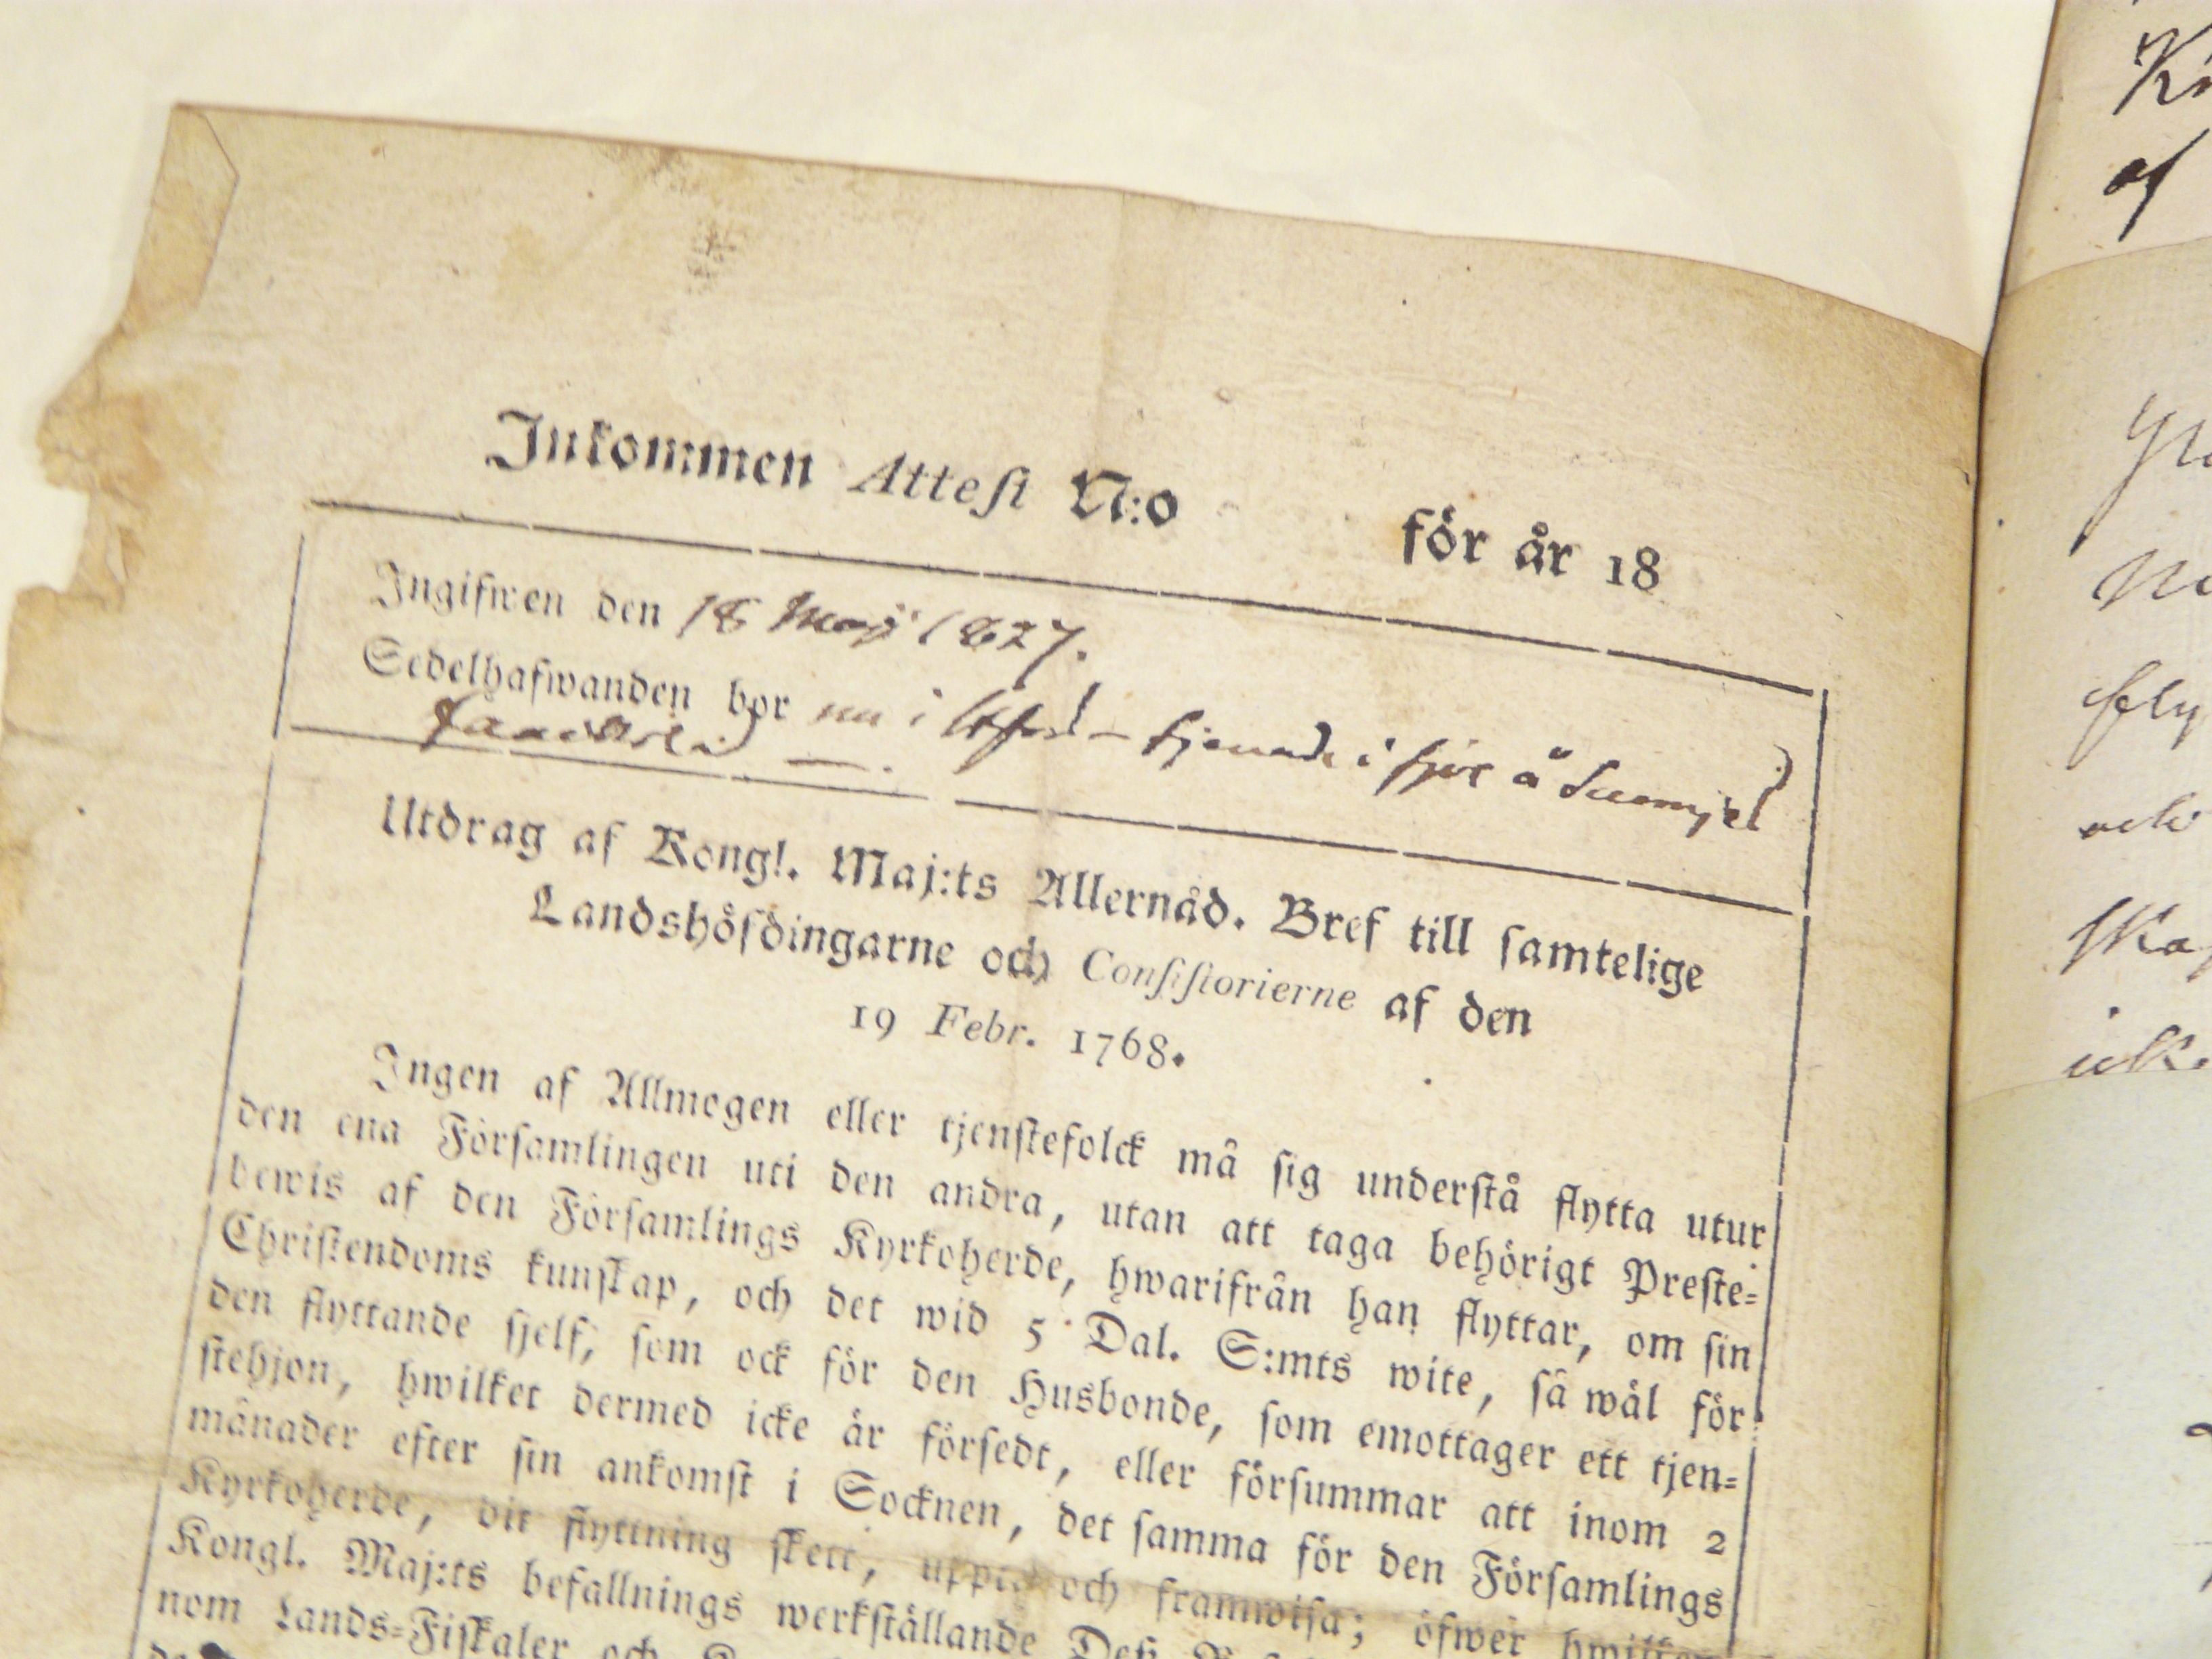 Inkommen Attest N:o för år 18
Ingifwen den 18 Maji 1827.
Sedelhafwanden bor nu i tjenade i fjor å
Utdrag af Kongl. Maj:ts Allernåd. Bref till samtelige
Landshöfdingarne och Consistorierne af den
19 Febr. 1768.
Ingen af Allmogen eller tjenstefolck må sig understå flytta utur
den ena Församlingen uti den andra, utan att taga behörigt Preste-
bewis af den Församlings Kyrkoherde, hwarifrån han flyttar, om sin
Christendoms kunskap, och det wid 5 Dal. S:mts wite, så wäl för
den flyttande sjelf, som ock för den Husbonde, som emottager ett tjen-
stehjon, hwilket dermed icke är försedt, eller försummar att inom 2
månader efter sin ankomst i Socknen, det samma för den Församlings
Kyrkoherde, dit flyttning skett, uppte och framwisa; öfwer hwilket
Kongl. Maj:ts befallnings werkställande Deß
nom Lands-Fiskaler och
Ki
af
icke